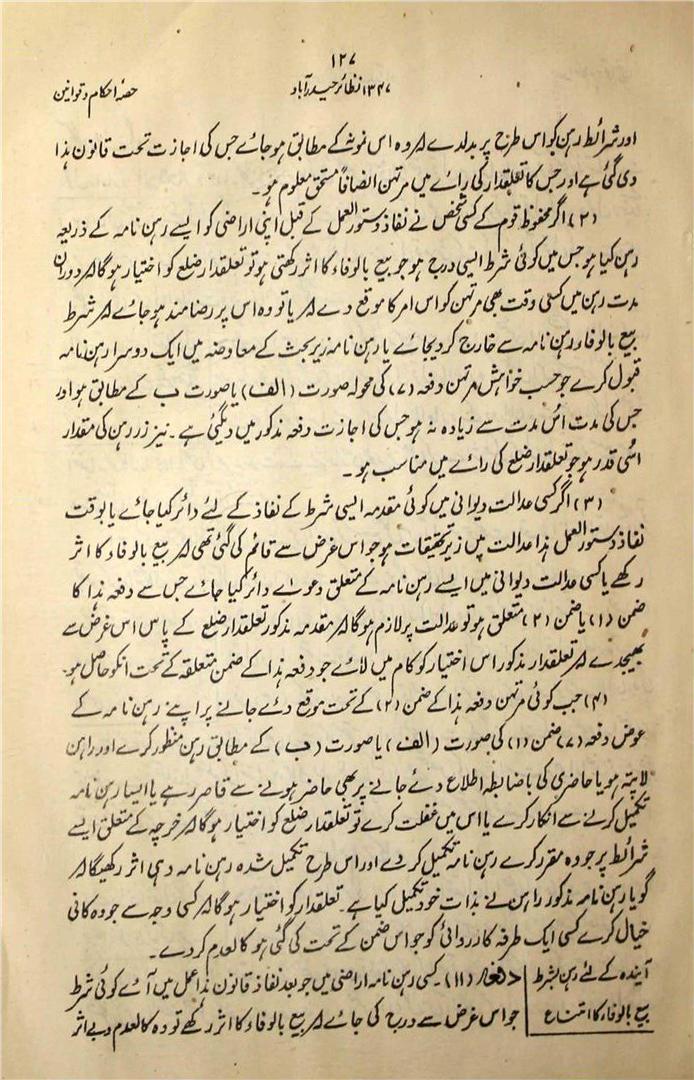 ۱۲۷
۱۳۴۷ نظائر حیدرآباد
حصہ احکام و قوانین
اور شرائط رہن کو اس طرح پر بدلدے کہ وہ اس نمونہ کے مطابق ہو جائے جس کی اجازت تحت قانون ہذا
دی گئی ہے اور جس کا تعلقدار کی رائے میں مرتہن انصافاً مستحق معلوم ہو۔
(۲) اگر محفوظ قوم کے کسی شخص نے نفاذ دستور العمل کے قبل اپنی اراضی کو ایسے رہن نامہ کے ذریعہ
رہن کیا ہو جس میں کوئی شرط ایسی درج ہو جو بیع بالوفاء کا اثر رکھتی ہو تو تعلقدار ضلع کو اختیار ہوگا کہ دوران
مدت رہن میں کسی وقت بھی مرتہن کو اس امر کا موقع دے کہ یا تو وہ اس پر رضامند ہو جائے کہ شرط
بیع بالوفاء رہن نامہ سے خارج کر دیجائے یا رہن نامہ زیر بحث کے معاوضہ میں ایک دوسرا رہن نامہ
قبول کرے جو حسب خواہش مرتہن دفعہ (۷) کی محولہ صورت (الف) یا صورت ب کے مطابق ہو اور
جس کی مدت اس مدت سے زیادہ نہ ہو جس کی اجازت دفعہ مذکور میں دیگئی ہے۔ نیز زر رہن کی مقدار
اسی قدر ہو جو تعلقدار ضلع کی رائے میں مناسب ہو۔
(۳) اگر کسی عدالت دیوانی میں کوئی مقدمہ ایسی شرط کے نفاذ کے لئے دائر کیا جائے یا بوقت
نفاذ دستور العمل ہذا عدالت میں زیر تحقیقات ہو جو اس غرض سے قائم کی گئی تھی کہ بیع بالوفاء کا اثر
رکھے یا کسی عدالت دیوانی میں ایسے رہن نامہ کے متعلق دعوے دائر کیا جائے جس سے دفعہ ہذا کا
ضمن (۱) یا ضمن (۲) متعلق ہو تو عدالت پر لازم ہوگا کہ مقدمہ مذکور تعلقدار ضلع کے پاس اس غرض سے
بھیجدے کہ تعلقدار مذکور اس اختیار کو کام میں لائے جو دفعہ ہذا کے ضمن متعلقہ کے تحت انکو حاصل ہو۔
(۴) جب کوئی مرتہن دفعہ ہذا کے ضمن (۲) کے تحت موقع دئے جانے پر اپنے رہن نامہ کے
عوض دفعہ (۷) ضمن (۱) کی صورت (الف) یا صورت (ب) کے مطابق رہن منظور کرے اور راہن
لاپتہ ہو یا حاضری کی باضابطہ اطلاع دئے جانے پر بھی حاضر ہونے سے قاصر رہے یا ایسا رہن نامہ
تکمیل کرنے سے انکار کرے یا اس میں غفلت کرے تو تعلقدار ضلع کو اختیار ہوگا کہ خرچہ کے متعلق ایسے
شرائط پر جو وہ مقرر کرے رہن نامہ تکمیل کردے اور اس طرح تکمیل شدہ رہن نامہ وہی اثر رکھیگا کہ
گویا رہن نامہ مذکور راہن نے بذات خود تکمیل کیا ہے۔ تعلقدار کو اختیار ہوگا کہ کسی وجہ سے جو وہ کافی
خیال کرے کسی ایک طرفہ کارروائی کو جو اس ضمن کے تحت کی گئی ہو کالعدم کردے۔
آیندہ کے لئے رہن بشرط
بیع بالوفاء کا امتناع
دفعہ (۱۱)۔ کسی رہن نامہ اراضی میں جو بعد نفاذ قانون ہذا عمل میں آئے کوئی شرط
جو اس غرض سے درج کی جائے کہ بیع بالوفاء کا اثر رکھے تو وہ کالعدم و بے اثر